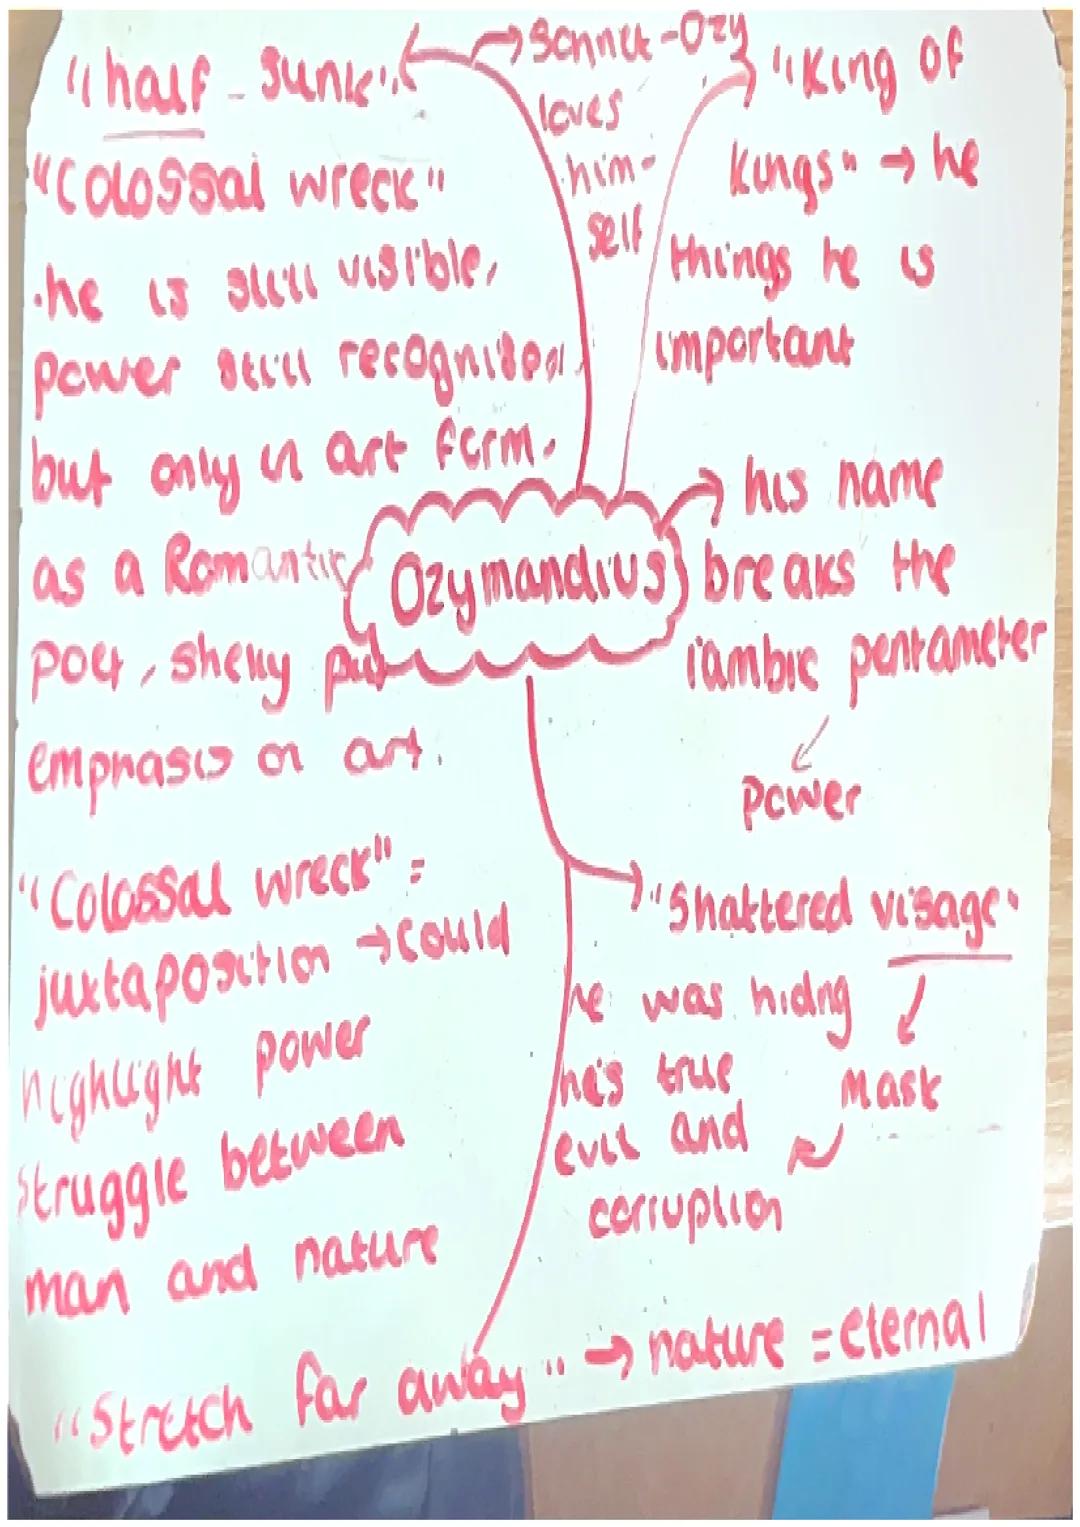 "half sunk"
"Colossal wreck"
•he is still visible,
power still recognised,
but only in art form.
as a Romantic
poet, shelly put
emphasis on art.
"Colossal wreck" =
juxtaposition → could
highlight power
struggle between
man and nature
→ Sonnet - Ozy
loves
him-
self
"King of
kings" → he
things he is
important
Ozymandius
→ his name
breaks the
iambic pentameter
power
→ "Shattered visage"
he was hiding
he's true
evil and
corruption
Mask
"Stretch far away" → nature = eternal